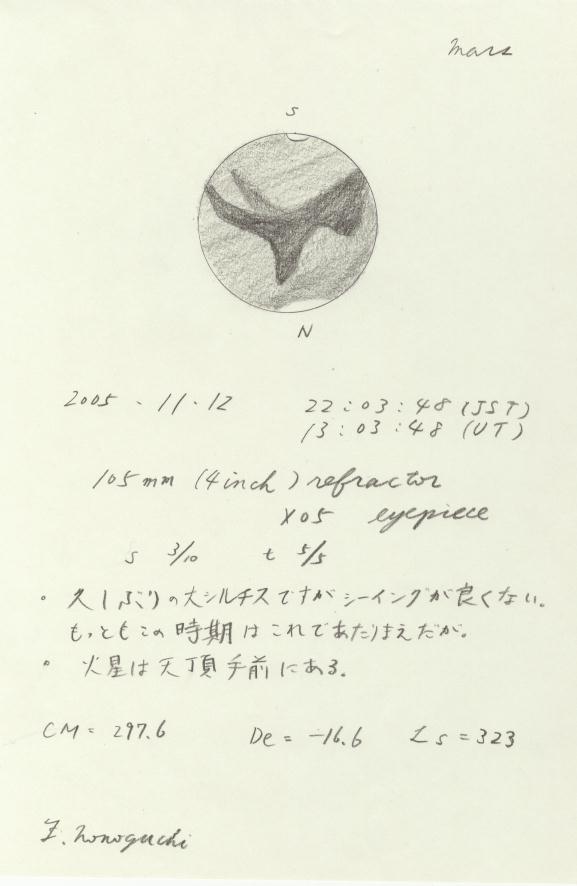 Mars
S
N
2005 . 11 . 12
22 : 03 : 48 (JST)
13 : 03 : 48 (UT)
105mm (4inch) refractor
XO5 eyepiece
s 3/10 t 5/5
• 久しぶりの大シルチスですがシーイングが良くない。
もっともこの時期はこれであたりまえだが。
• 火星は天頂手前にある。
CM = 297.6 De = -16.6 Ls = 323